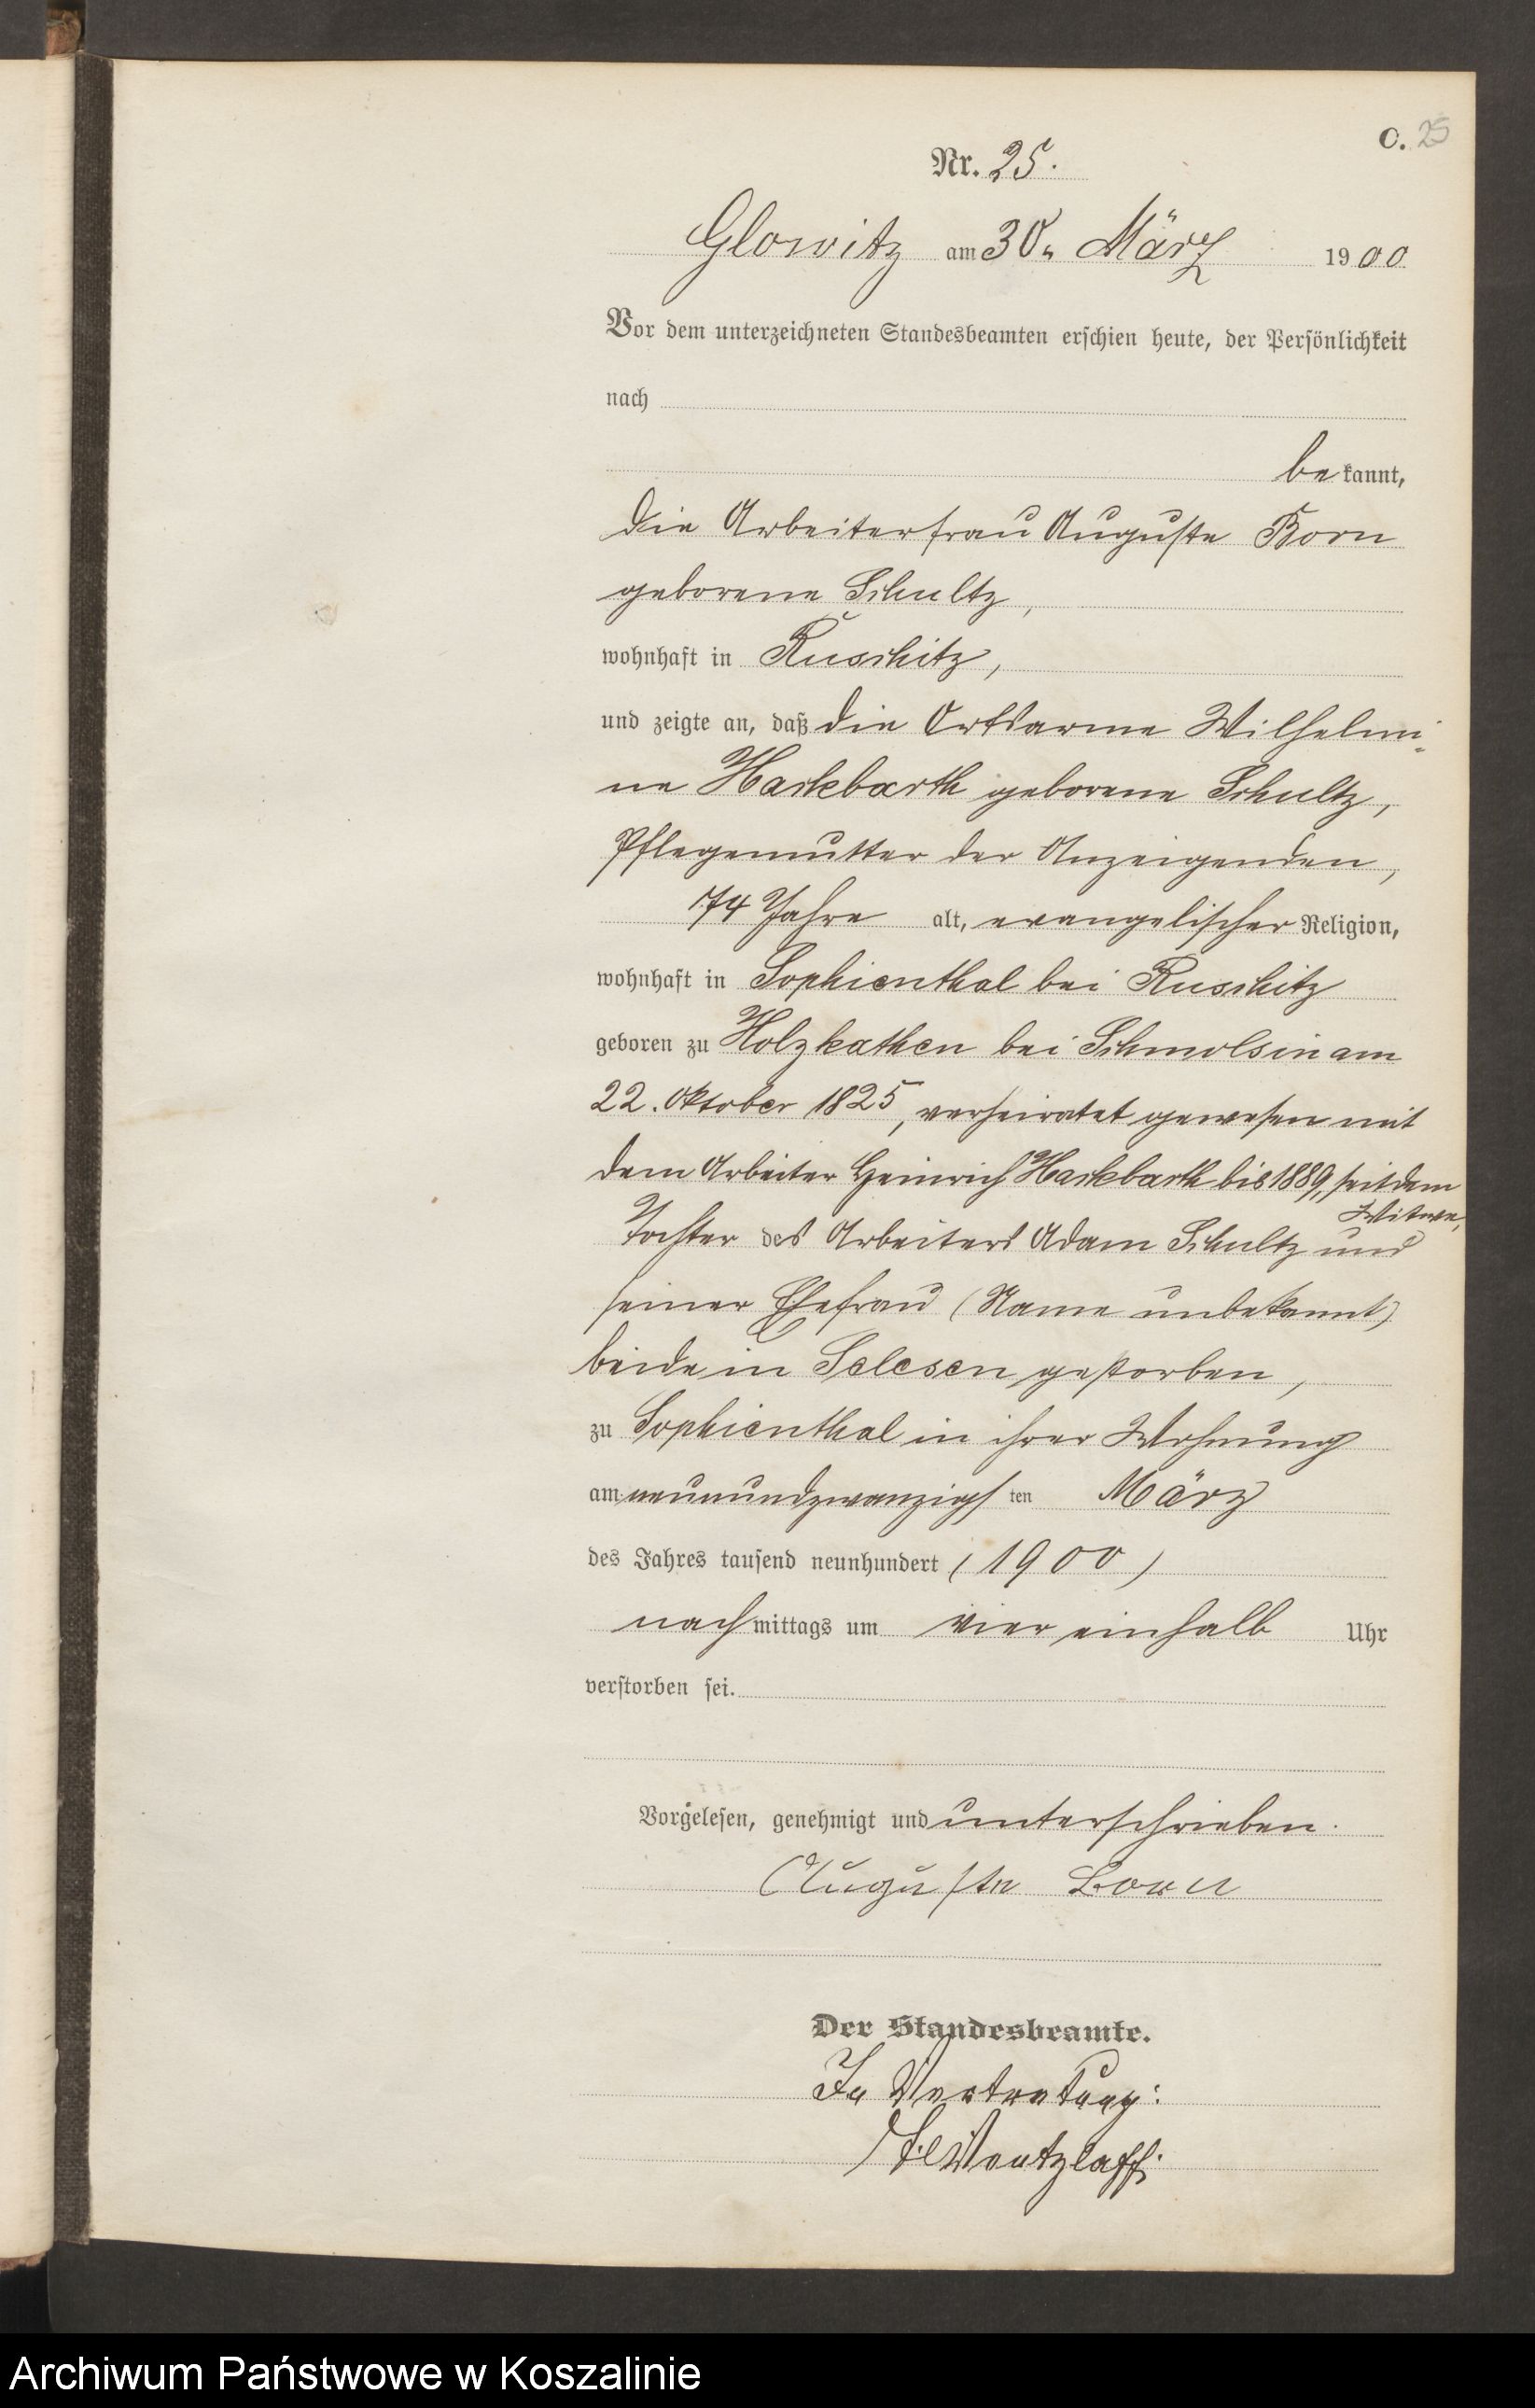 C. 25
Nr. 25.
Glowitz am 30. März 1900
Vor dem unterzeichneten Standesbeamten erschien heute, der Persönlichkeit
nach
be kannt,
die Arbeiterfrau Auguste Born
geborene Schultz,
wohnhaft in Ruschitz,
und zeigte an, daß die Ortsarme Wilhelmi-
ne Hackbarth geborene Schultz,
Pflegemutter der Anzeigenden,
74 Jahre alt, evangelischer Religion,
wohnhaft in Sophienthal bei Ruschitz
geboren zu Holzkathen bei Schmolsin am
22. Oktober 1825, verheiratet gewesen mit
dem Arbeiter Heinrich Hackbarth bis 1889, seitdem
Witwe,
Tochter des Arbeiters Adam Schultz und
seiner Ehefrau (Name unbekannt)
beide in Selesen gestorben,
zu Sophienthal in ihrer Wohnung
am neunundzwanzigsten März
des Jahres tausend neunhundert (1900)
nachmittags um vier einhalb Uhr
verstorben sei.
Vorgelesen, genehmigt und unterschrieben.
Auguste Born
Der Standesbeamte.
In Vertretung:
Wentzlaff.
Archiwum Państwowe w Koszalinie